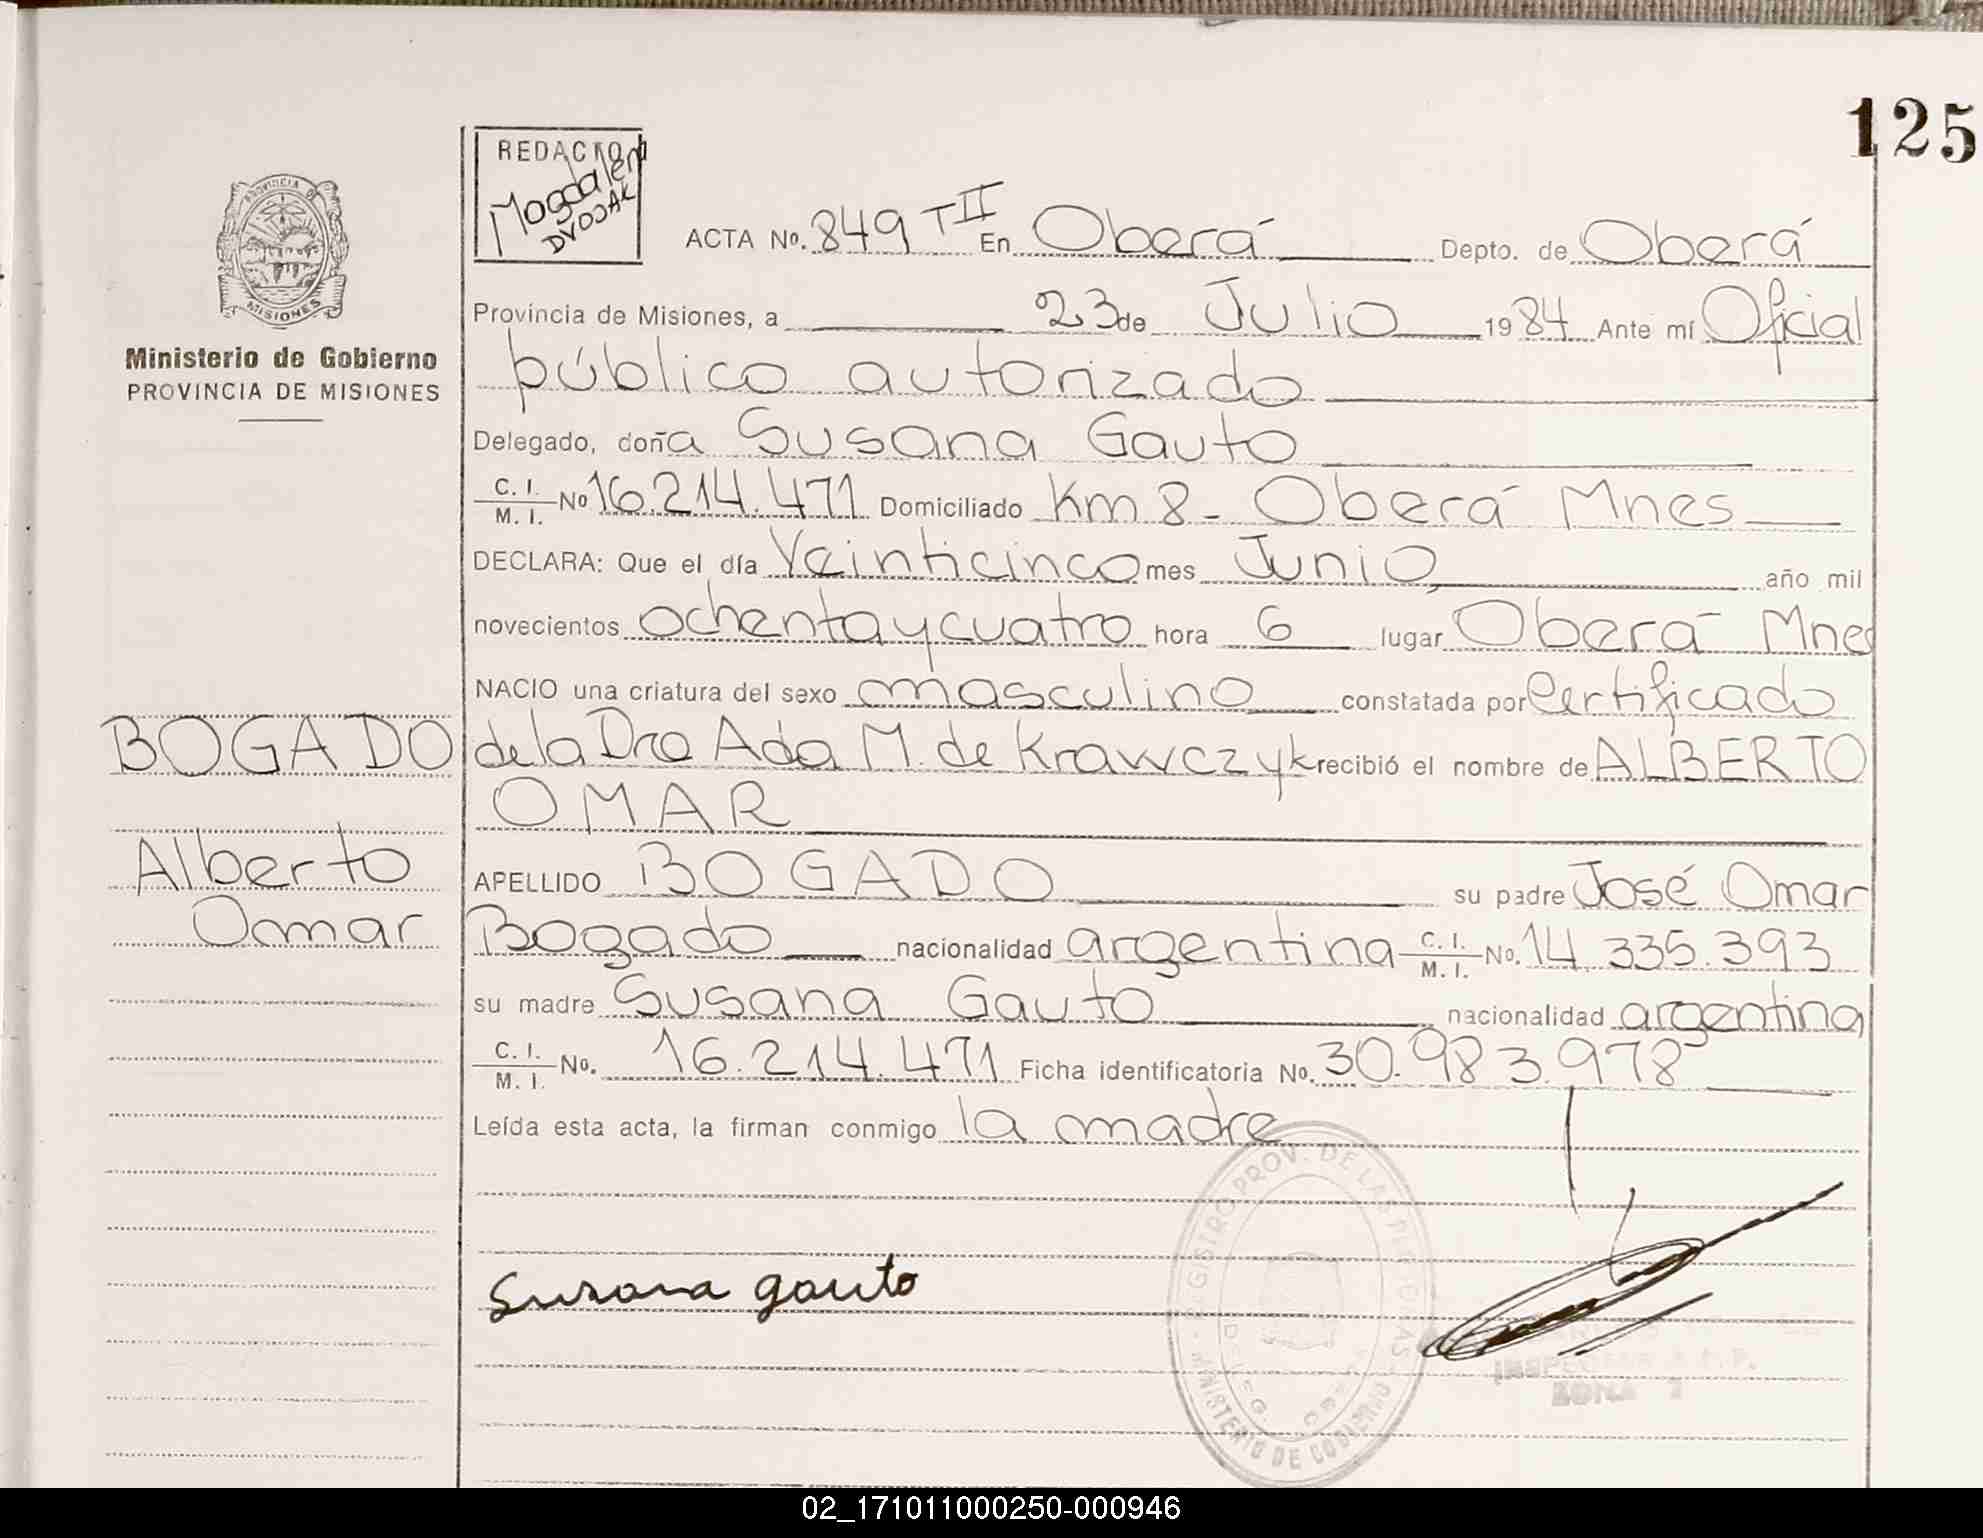 125
REDACTO
Magdalen
DVOJAK
PROVINCIA DE
MISIONES
Ministerio de Gobierno
PROVINCIA DE MISIONES
ACTA No. 849 TII En Oberá Depto. de Oberá
Provincia de Misiones, a 23 de Julio 1984 Ante mí Oficial
público autorizado
Delegado, doña Susana Gauto
C. I. / M. I. No 16.214.471 Domiciliado Km 8 - Oberá Mnes
DECLARA: Que el día Veinticinco mes Junio año mil
novecientos ochentaycuatro hora 6 lugar Oberá Mnes
NACIO una criatura del sexo masculino constatada por Certificado
de la Dra Ada M. de Krawczyk recibió el nombre de ALBERTO
OMAR
APELLIDO BOGADO su padre José Omar
Bogado nacionalidad argentina C. I. / M. I. No. 14.335.393
su madre Susana Gauto nacionalidad argentina
C. I. / M. I. No. 16.214.471 Ficha identificatoria No. 30.983.978
Leída esta acta, la firman conmigo la madre
BOGADO
Alberto
Omar
Susana gauto
REGISTRO PROV. DE LAS PERSONAS
MINISTERIO DE GOBIERNO
DELEG. OBERA
INSPECTOR R. P.
ZONA
02_171011000250-000946